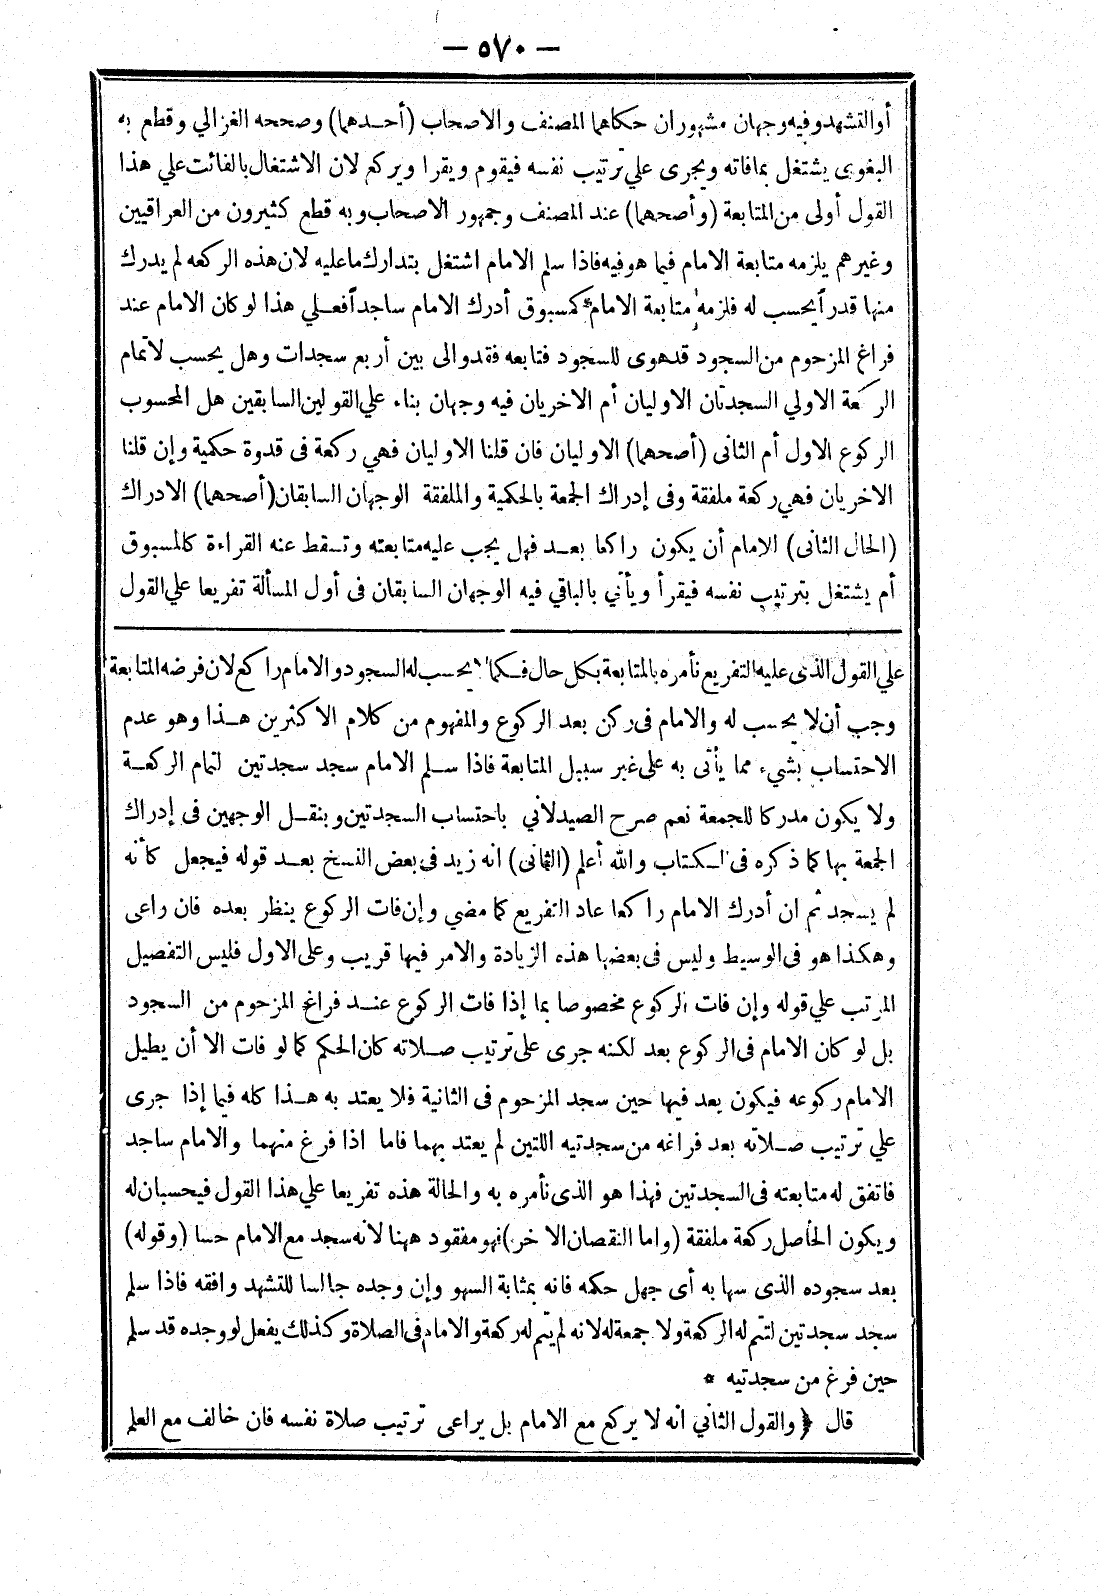 — ٥٧٠ —
أوالتشهد وفيه وجهان مشهوران حكاهما المصنف والاصحاب (أحدهما) وصححه الغزالي وقطع به
البغوى يشتغل بمافاته ويجرى علي ترتيب نفسه فيقوم ويقرا ويركع لان الاشتغال بالفائت علي هذا
القول أولى من المتابعة (وأصحهما) عند المصنف وجمهور الاصحاب وبه قطع كثيرون من العراقيين
وغيرهم يلزمه متابعة الامام فيما هو فيه فاذا سلم الامام اشتغل بتدارك ماعليه لان هذه الركعه لم يدرك
منها قدراً يحسب له فلزمه متابعة الامام كمسبوق أدرك الامام ساجداً فعلي هذا لو كان الامام عند
فراغ المزحوم من السجود قدهوى للسجود فتابعه فقد والى بين أربع سجدات وهل يحسب لاتمام
الركعة الاولي السجدتان الاوليان أم الاخريان فيه وجهان بناء علي القولين السابقين هل المحسوب
الركوع الاول أم الثانى (أصحهما) الاوليان فان قلنا الاوليان فهي ركعة فى قدوة حكمية وإن قلنا
الاخريان فهي ركعة ملفقة وفى إدراك الجمعة بالحكمية والملفقة الوجهان السابقان (أصحهما) الادراك
(الحال الثانى) للامام أن يكون راكعا بعد فهل يجب عليه متابعته وتسقط عنه القراءة كالمسبوق
أم يشتغل بترتيب نفسه فيقرأ ويأتي بالباقي فيه الوجهان السابقان فى أول المسألة تفريعا علي القول
علي القول الذى عليه التفريع نأمره بالمتابعة بكل حال فكما لا يحسب له السجود والامام راكع لان فرضه المتابعة
وجب أن لا يحسب له والامام فى ركن بعد الركوع والمفهوم من كلام الاكثرين هذا وهو عدم
الاحتساب بشيء مما يأتى به على غير سبيل المتابعة فاذا سلم الامام سجد سجدتين لتمام الركعة
ولا يكون مدركا للجمعة نعم صرح الصيدلاني باحتساب السجدتين وبنقل الوجهين فى إدراك
الجمعة بها كما ذكره فى الكتاب والله أعلم (الثانى) انه زيد فى بعض النسخ بعد قوله فيجعل كأنه
لم يسجد ثم ان أدرك الامام راكعا عاد التفريع كما مضي وإن فات الركوع ينظر بعده فان راعى
وهكذا هو فى الوسيط وليس فى بعضها هذه الزيادة والامر فيها قريب وعلى الاول فليس التفصيل
المرتب علي قوله وإن فات الركوع مخصوصا بما إذا فات الركوع عند فراغ المزحوم من السجود
بل لو كان الامام فى الركوع بعد لكنه جرى على ترتيب صلاته كان الحكم كما لو فات الا أن يطيل
الامام ركوعه فيكون بعد فيها حين سجد المزحوم فى الثانية فلا يعتد به هذا كله فيما إذا جرى
علي ترتيب صلاته بعد فراغه من سجدتيه اللتين لم يعتد بهما فاما اذا فرغ منهما والامام ساجد
فاتفق له متابعته فى السجدتين فهذا هو الذى نأمره به والحالة هذه تفريعا علي هذا القول فيحسبان له
ويكون الحاصل ركعة ملفقة (واما النقصان الا خر) فهو مفقود ههنا لانه سجد مع الامام حسا (وقوله)
بعد سجوده الذى سها به أى جهل حكمه فانه بمثابة السهو وإن وجده جالسا للتشهد وافقه فاذا سلم
سجد سجدتين لتتم له الركعة ولا جمعة له لانه لم يتم له ركعة والامام فى الصلاة وكذلك يفعل لو وجده قد سلم
حين فرغ من سجدتيه *
قال ﴿ والقول الثاني انه لا يركع مع الامام بل يراعى ترتيب صلاة نفسه فان خالف مع العلم